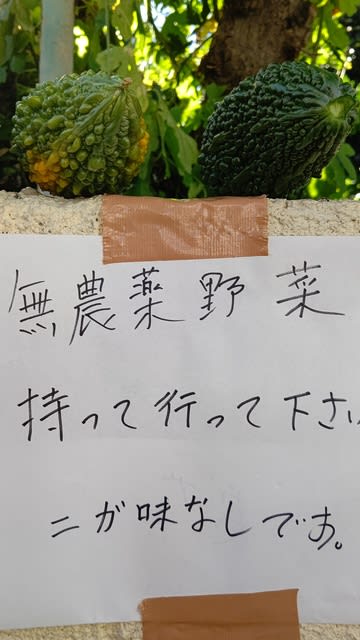 無農薬野菜
持って行って下さい
ニが味なしです。